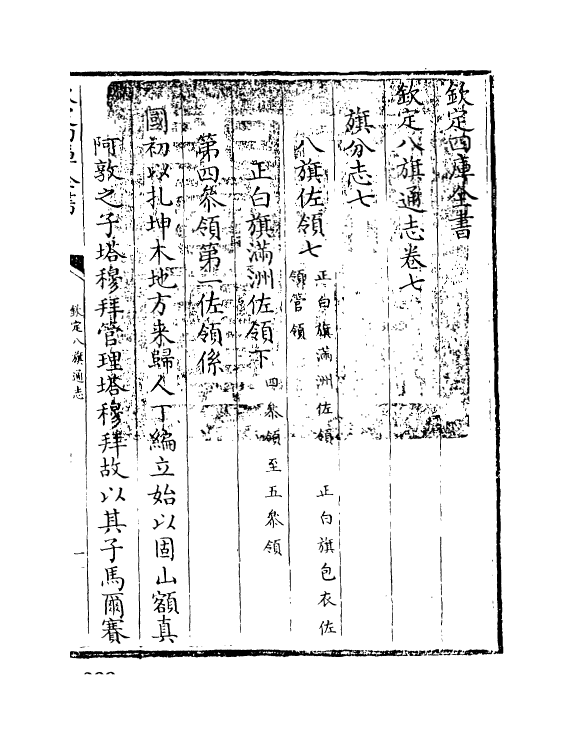 欽定四庫全書
欽定八旗通志卷七
旗分志七
八旗佐領七 正白旗滿洲佐領 正白旗包衣佐領管領
正白旗滿洲佐領下 四叅領至五叅領
第四叅領第一佐領係
國初以扎坤木地方来歸人丁編立始以固山額真
阿敦之子塔穆拜管理塔穆拜故以其子馬爾賽
欽定八旗通志
一